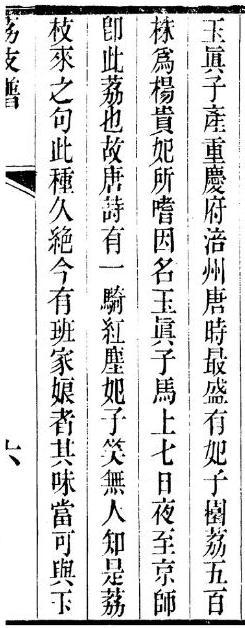 玉真子產重慶府涪州唐時最盛有妃子園荔五百
株爲楊貴妃所嗜因名玉真子馬上七日夜至京師
卽此荔也故唐詩有一騎紅塵妃子笑無人知是荔
枝來之句此種久絶今有班家娘者其味當可與玉
荔枝譜
六